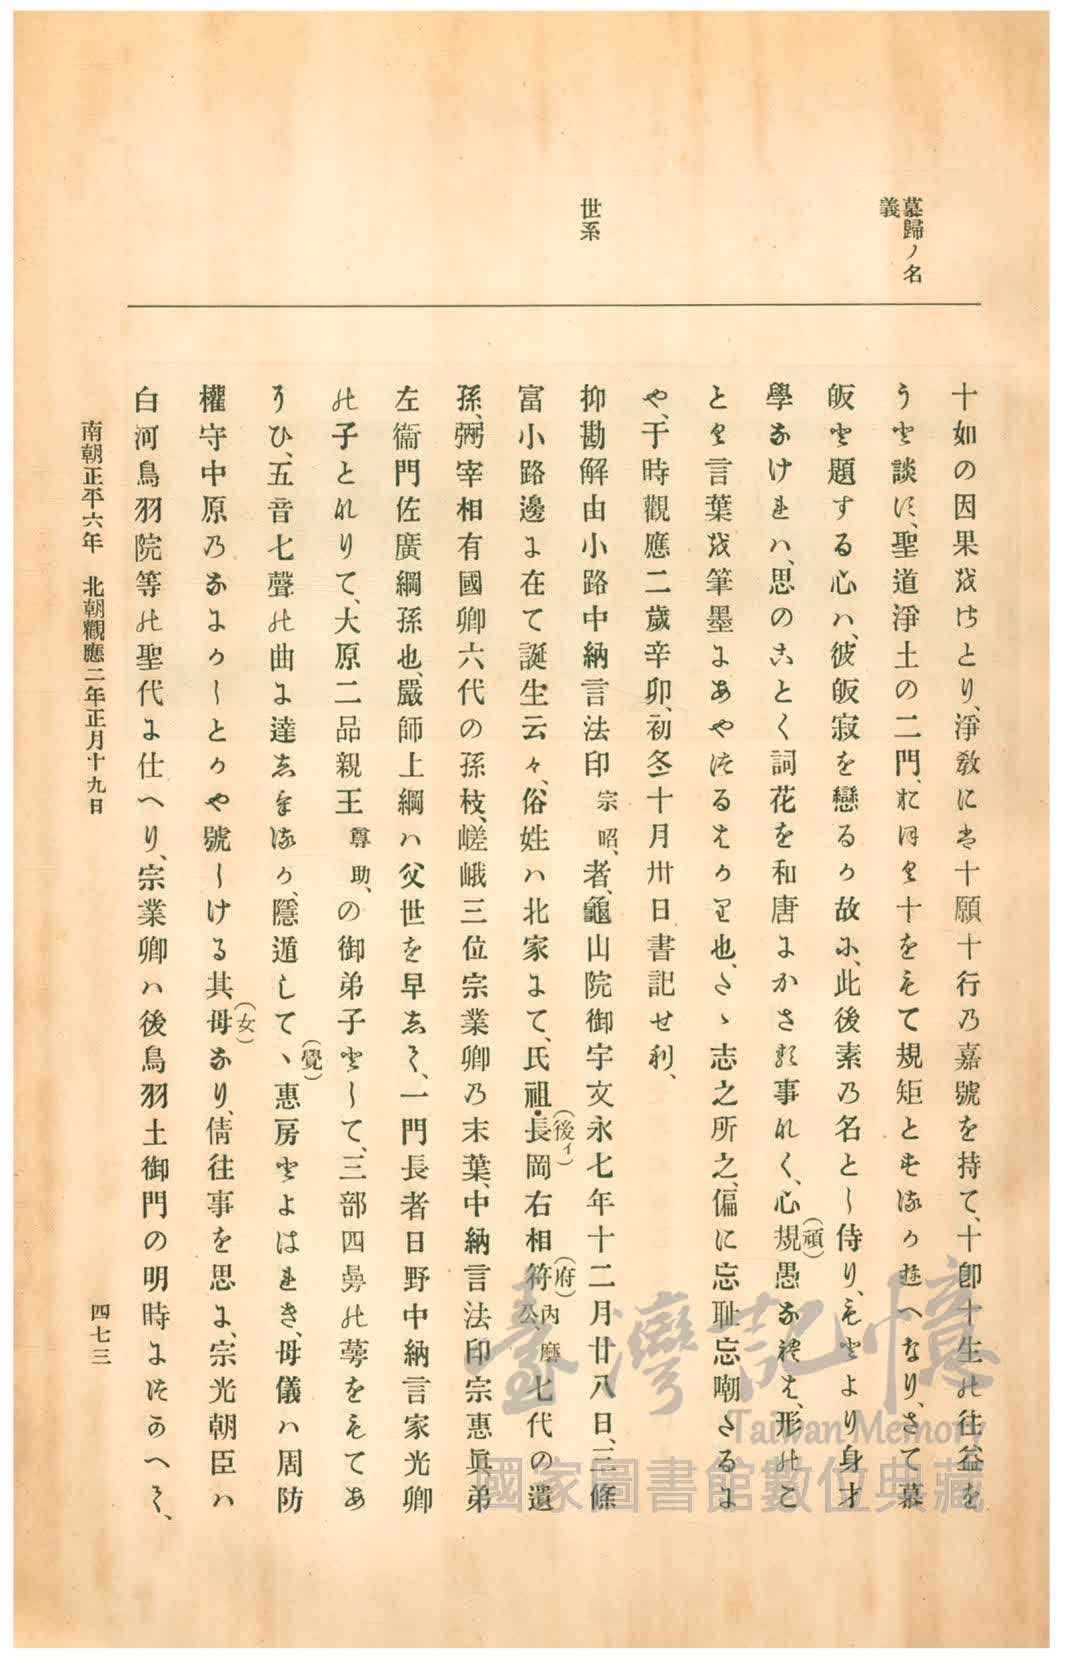 慕歸ノ名
義
世系
十如の因果をけとり、淨教には十願十行乃嘉號を持て、十卽十生の往益を
うと談に、聖道淨土の二門、おほく十をもて規矩とするか故へなり、さて慕
皈と題する心ハ、彼皈寂を戀るか故に、此後素乃名とし侍り、もとより身才
學なけれハ、思のことく詞花を和唐にかさる事れく、心規愚なれは、形のこ
(頑)
とく言葉を筆墨にあやつるはかり也、たゝ志之所之、偏に忘耻忘嘲たるよ
や、于時觀應二歲辛卯、初冬十月卅日書記せ利、
抑勘解由小路中納言法印宗昭、者、龜山院御宇文永七年十二月廿八日、三條
富小路邊よ在て誕生云々、俗姓ハ北家よて、氏祖・長岡右相符內麿公七代の遺
(後イ)
(府)
孫、彌宰相有國卿六代の孫枝、嵯峨三位宗業卿乃末葉、中納言法印宗惠眞弟
左衞門佐廣綱孫也、嚴師上綱ハ父世を早しそ、一門長者日野中納言家光卿
の子とれりて、大原二品親王尊助、の御弟子として、三部四曼の夢をもてあ
(覺)
うひ、五音七聲の曲よ達しまるか、隱遁して、惠房とよはれき、母儀ハ周防
(女)
權守中原乃なにかしとかや號しける其母なり、倩往事を思よ、宗光朝臣ハ
白河鳥羽院等の聖代よ仕へり、宗業卿ハ後鳥羽土御門の明時よつかへそ、
南朝正平六年　北朝觀應二年正月十九日
四七三
臺灣記憶
Taiwan Memory
國家圖書館數位典藏